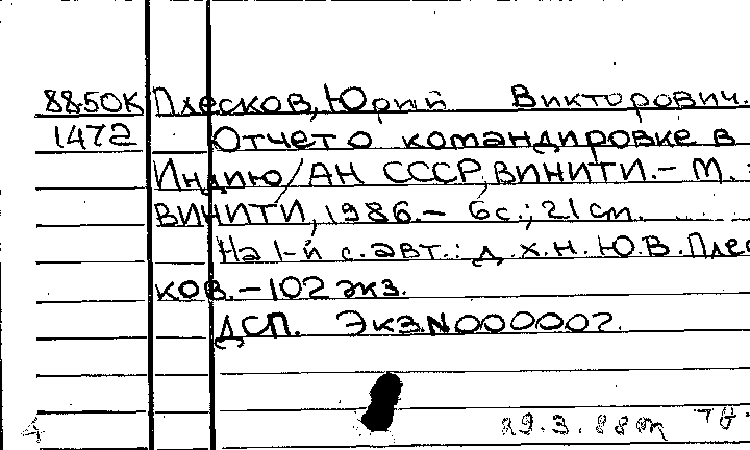 8850К Плесков, Юрий Викторович.
1472 Отчет о командировке в
Индию/АН СССР, ВИНИТИ.- М.:
ВИНИТИ, 1986.- 6с.; 21 cm.
На 1-й с. авт.: д.х.н. Ю.В. Плес
ков.-102 экз.
ДСП. Экз N000002.
29.3.88